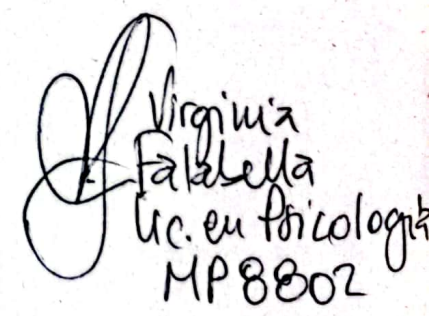 Virginia
Falabella
Lic. en Psicología
MP 8802